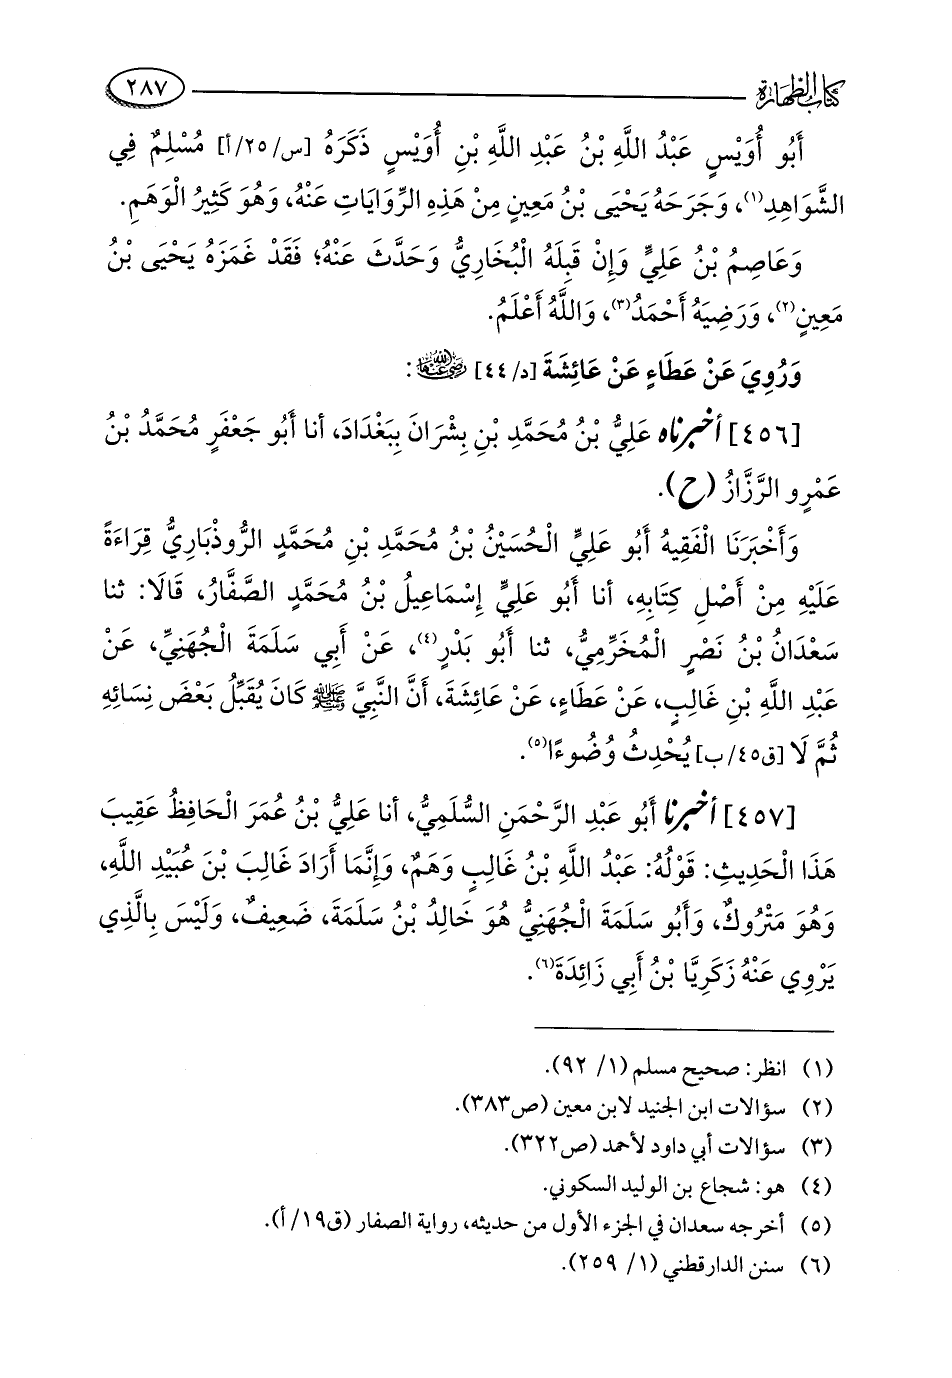 كتاب الطهارة ٢٨٧
أَبُو أُوَيْسٍ عَبْدُ اللَّهِ بْنُ عَبْدِ اللَّهِ بْنِ أُوَيْسٍ ذَكَرَهُ [س/٢٥/أ] مُسْلِمٌ فِي
الشَّوَاهِدِ(١)، وَجَرَحَهُ يَحْيَى بْنُ مَعِينٍ مِنْ هَذِهِ الرِّوَايَاتِ عَنْهُ، وَهُوَ كَثِيرُ الْوَهَمِ.
وَعَاصِمُ بْنُ عَلِيٍّ وَإِنْ قَبِلَهُ الْبُخَارِيُّ وَحَدَّثَ عَنْهُ؛ فَقَدْ غَمَزَهُ يَحْيَى بْنُ
مَعِينٍ(٢)، وَرَضِيَهُ أَحْمَدُ(٣)، وَاللَّهُ أَعْلَمُ.
وَرُوِيَ عَنْ عَطَاءٍ عَنْ عَائِشَةَ [د/٤٤] رضي الله عنها:
[٤٥٦] أخبرناه عَلِيُّ بْنُ مُحَمَّدِ بْنِ بِشْرَانَ بِبَغْدَادَ، أنا أَبُو جَعْفَرٍ مُحَمَّدُ بْنُ
عَمْرٍو الرَّزَّازُ (ح).
وَأَخْبَرَنَا الْفَقِيهُ أَبُو عَلِيٍّ الْحُسَيْنُ بْنُ مُحَمَّدِ بْنِ مُحَمَّدٍ الرُّوذْبَارِيُّ قِرَاءَةً
عَلَيْهِ مِنْ أَصْلِ كِتَابِهِ، أنا أَبُو عَلِيٍّ إِسْمَاعِيلُ بْنُ مُحَمَّدٍ الصَّفَّارُ، قَالَا: ثنا
سَعْدَانُ بْنُ نَصْرٍ الْمُخَرِّمِيُّ، ثنا أَبُو بَدْرٍ(٤)، عَنْ أَبِي سَلَمَةَ الْجُهَنِيِّ، عَنْ
عَبْدِ اللَّهِ بْنِ غَالِبٍ، عَنْ عَطَاءٍ، عَنْ عَائِشَةَ، أَنَّ النَّبِيَّ ﷺ كَانَ يُقَبِّلُ بَعْضَ نِسَائِهِ
ثُمَّ لَا [ق٤٥/ب] يُحْدِثُ وُضُوءًا(٥).
[٤٥٧] أخبرنا أَبُو عَبْدِ الرَّحْمَنِ السُّلَمِيُّ، أنا عَلِيُّ بْنُ عُمَرَ الْحَافِظُ عَقِيبَ
هَذَا الْحَدِيثِ: قَوْلُهُ: عَبْدُ اللَّهِ بْنُ غَالِبٍ وَهَمٌ، وَإِنَّمَا أَرَادَ غَالِبَ بْنَ عُبَيْدِ اللَّهِ،
وَهُوَ مَتْرُوكٌ، وَأَبُو سَلَمَةَ الْجُهَنِيُّ هُوَ خَالِدُ بْنُ سَلَمَةَ، ضَعِيفٌ، وَلَيْسَ بِالَّذِي
يَرْوِي عَنْهُ زَكَرِيَّا بْنُ أَبِي زَائِدَةَ(٦).
(١) انظر: صحيح مسلم (١/ ٩٢).
(٢) سؤالات ابن الجنيد لابن معين (ص٣٨٣).
(٣) سؤالات أبي داود لأحمد (ص٣٢٢).
(٤) هو: شجاع بن الوليد السكوني.
(٥) أخرجه سعدان في الجزء الأول من حديثه، رواية الصفار (ق١٩/أ).
(٦) سنن الدارقطني (١/ ٢٥٩).